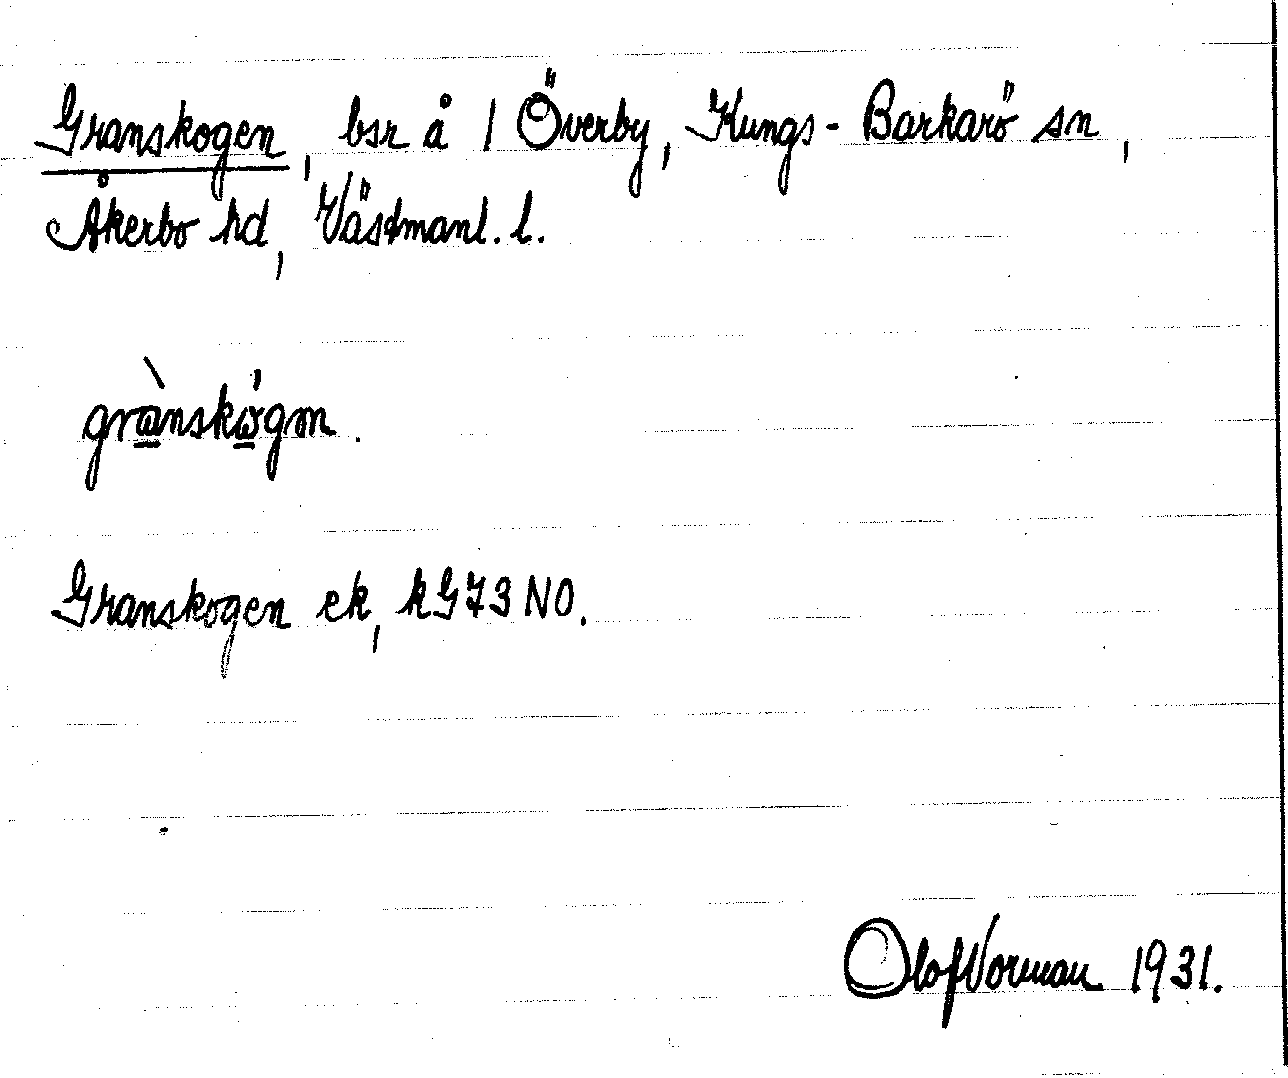 Granskogen, bsr å 1 Överby, Kungs-Barkarö sn,
Åkerbo hd, Västmanl. l.
grànskógm.
Granskogen ek, kG73NO.
Olof Vorman 1931.